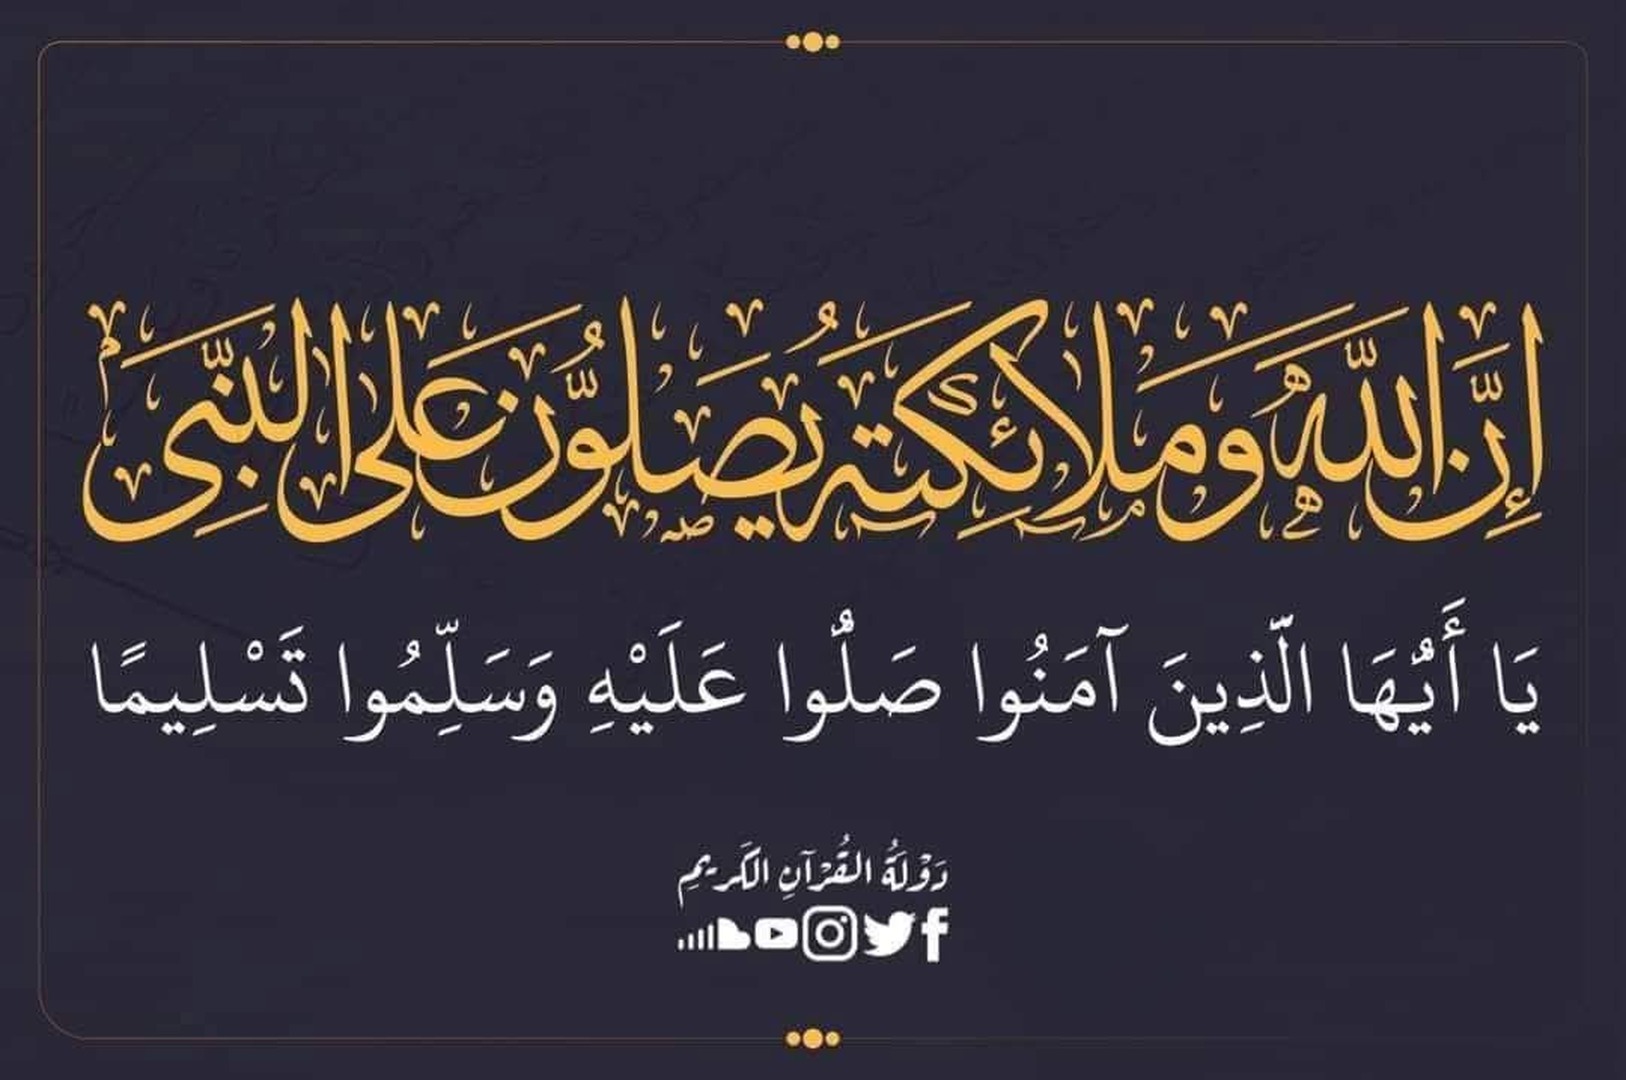 إِنَّ اللَّهَ وَمَلَائِكَتَهُ يُصَلُّونَ عَلَى النَّبِيِّ
يَا أَيُّهَا الَّذِينَ آمَنُوا صَلُّوا عَلَيْهِ وَسَلِّمُوا تَسْلِيمًا
دَوْلَةُ القُرْآنِ الكَرِيمِ